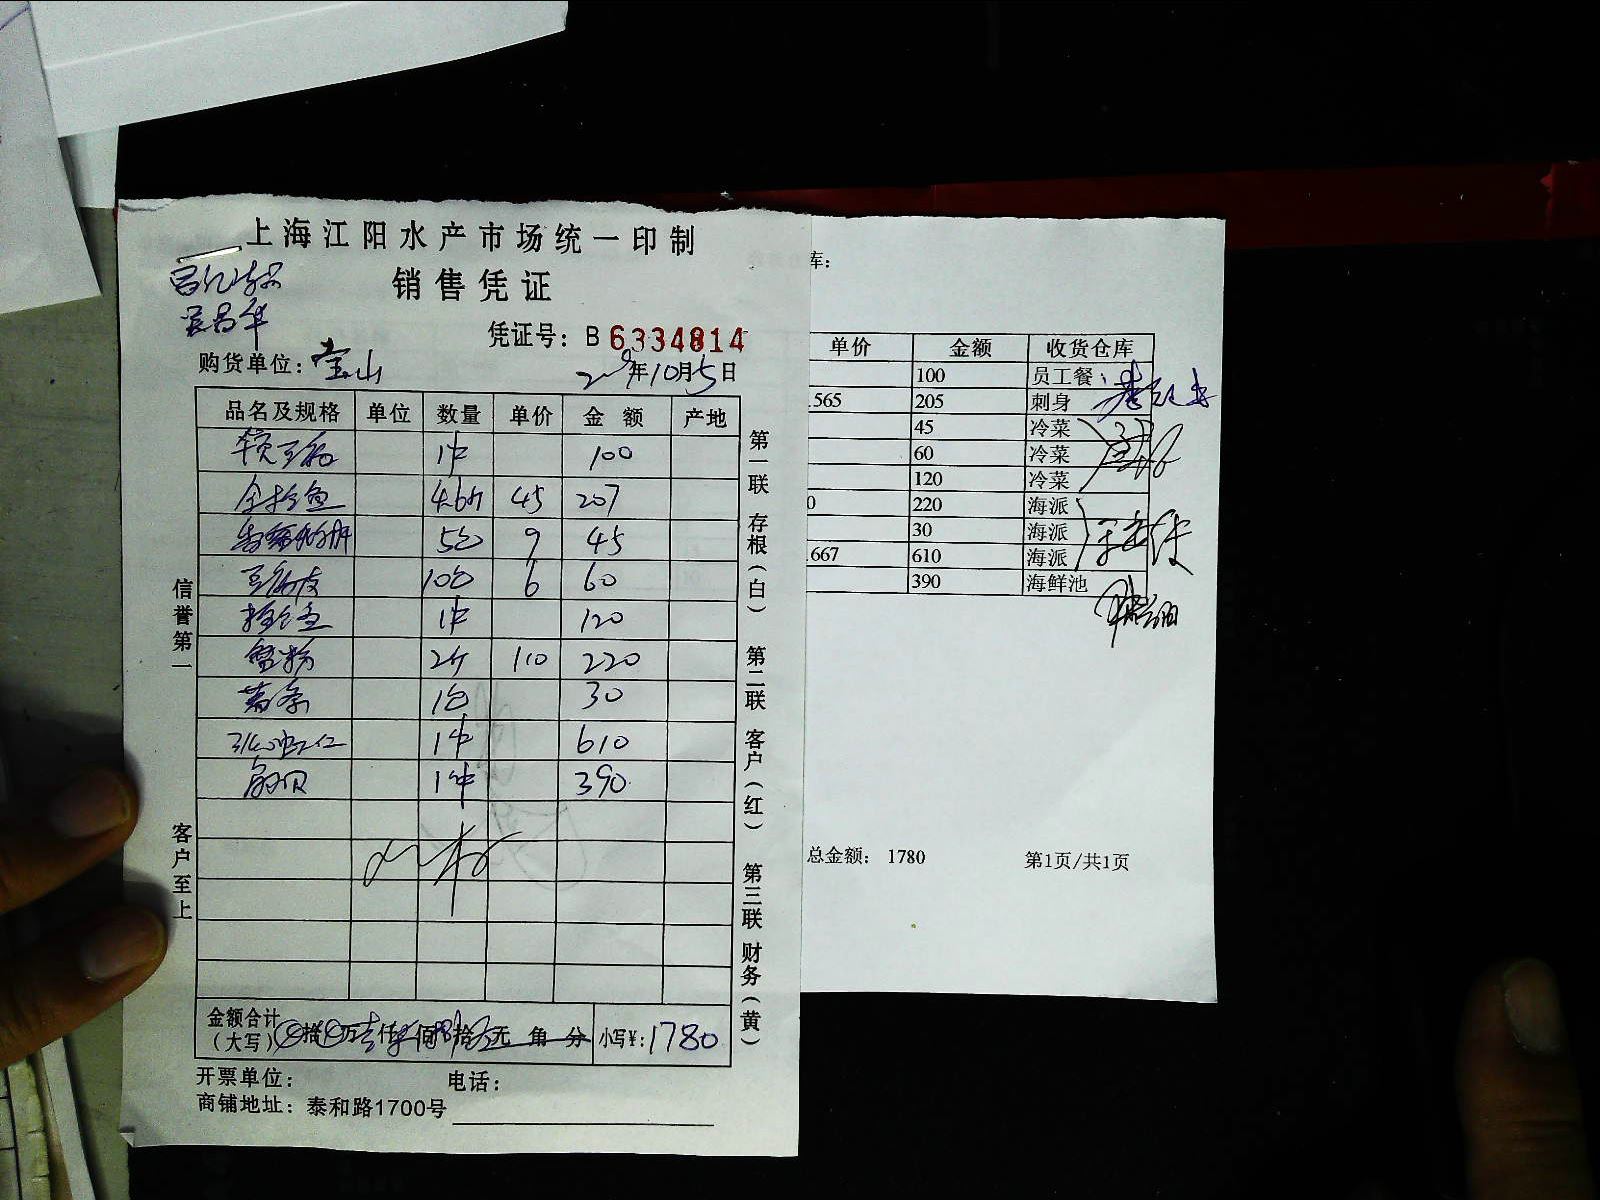 上海江阳水产市场统一印制
销售凭证
凭证号：B 6334814
购货单位：宝山
年10月5日
品名及规格 单位 数量 单价 金额 产地
1件 100
4.6斤 45 207
5包 9 45
豆腐皮 10包 6 60
1件 120
蟹粉 2斤 110 220
薯条 1包 30
1件 610
扇贝 1件 390
金额合计（大写） 拾 万 仟 佰 拾 元 角 分 小写¥：1780
开票单位： 电话：
商铺地址：泰和路1700号
信誉第一 客户至上
第一联 存根（白） 第二联 客户（红） 第三联 财务（黄）
库：
单价 金额 收货仓库
100 员工餐
.565 205 刺身
45 冷菜
60 冷菜
120 冷菜
0 220 海派
30 海派
.667 610 海派
390 海鲜池
总金额： 1780 第1页/共1页